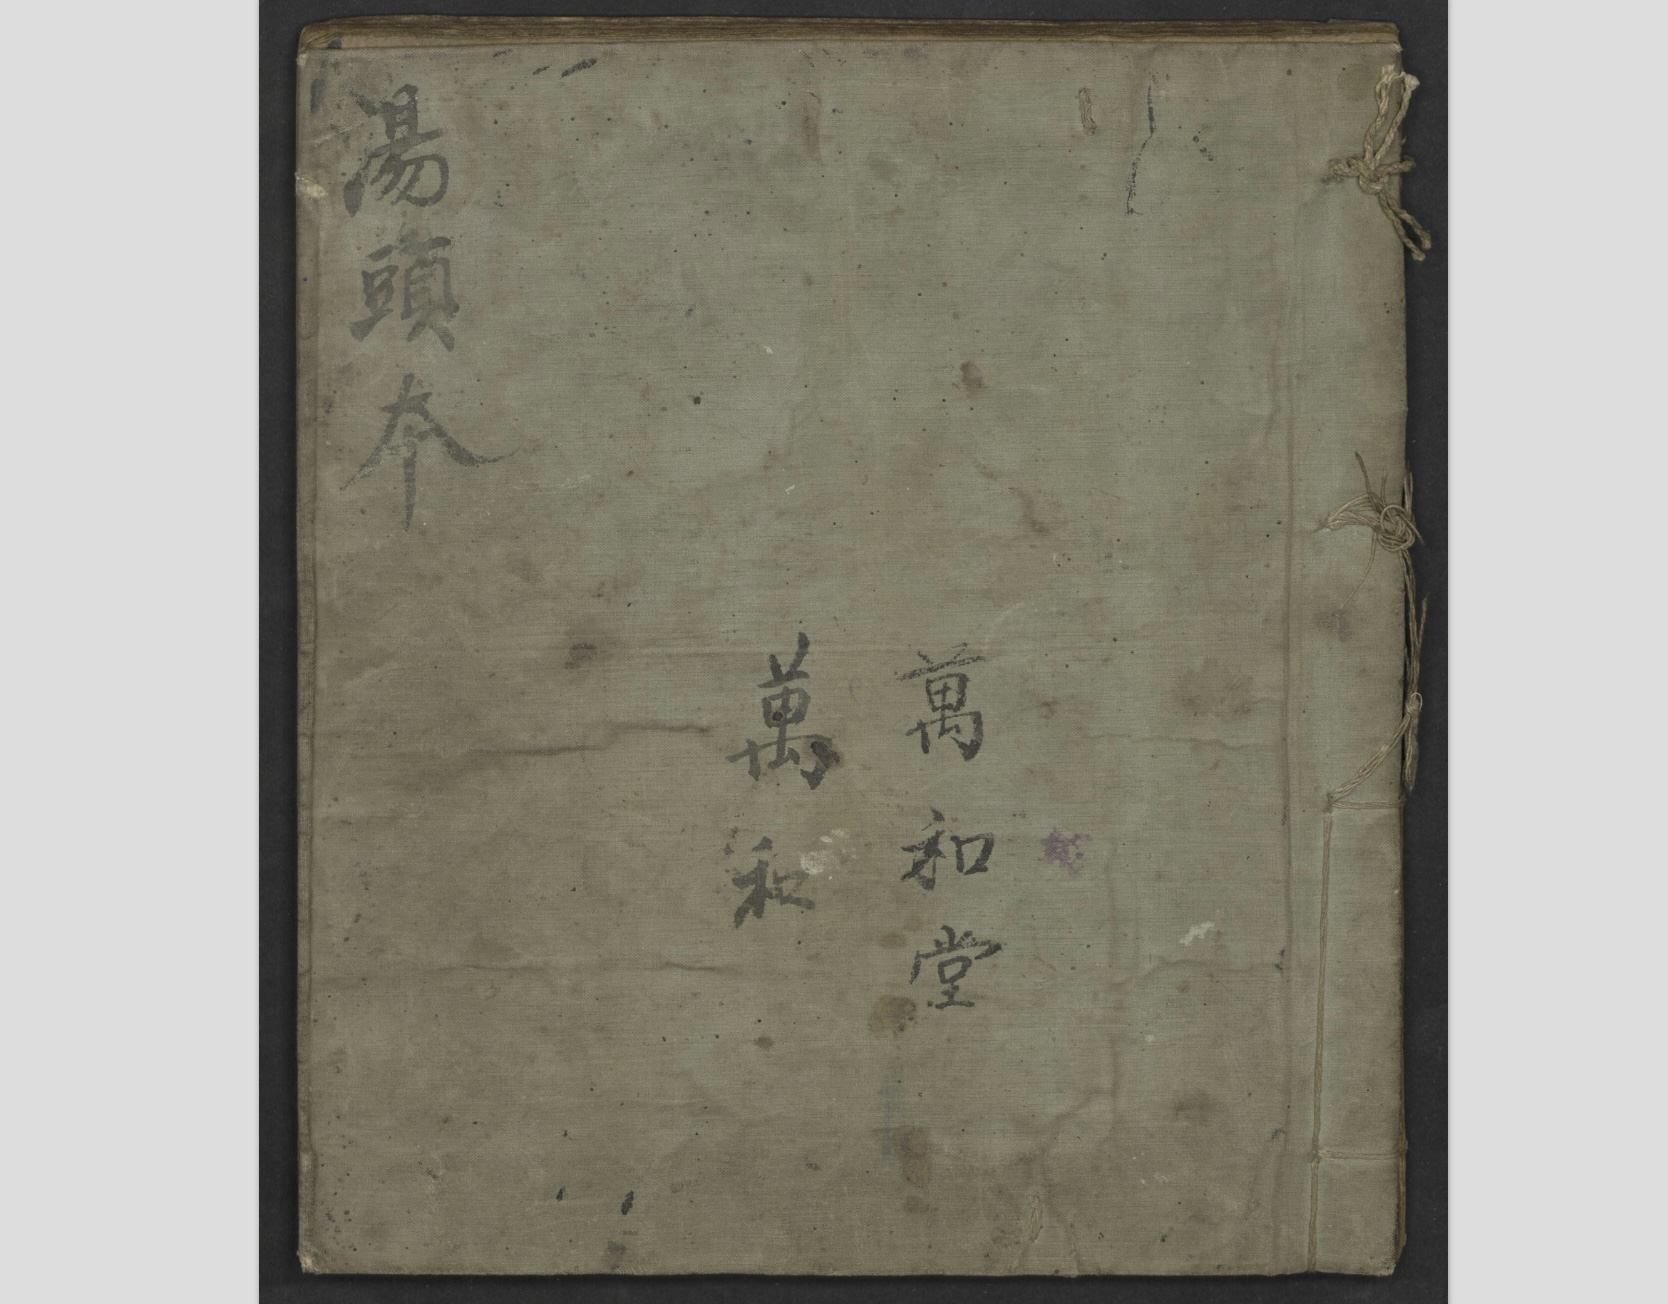 萬和堂
萬和
湯頭本